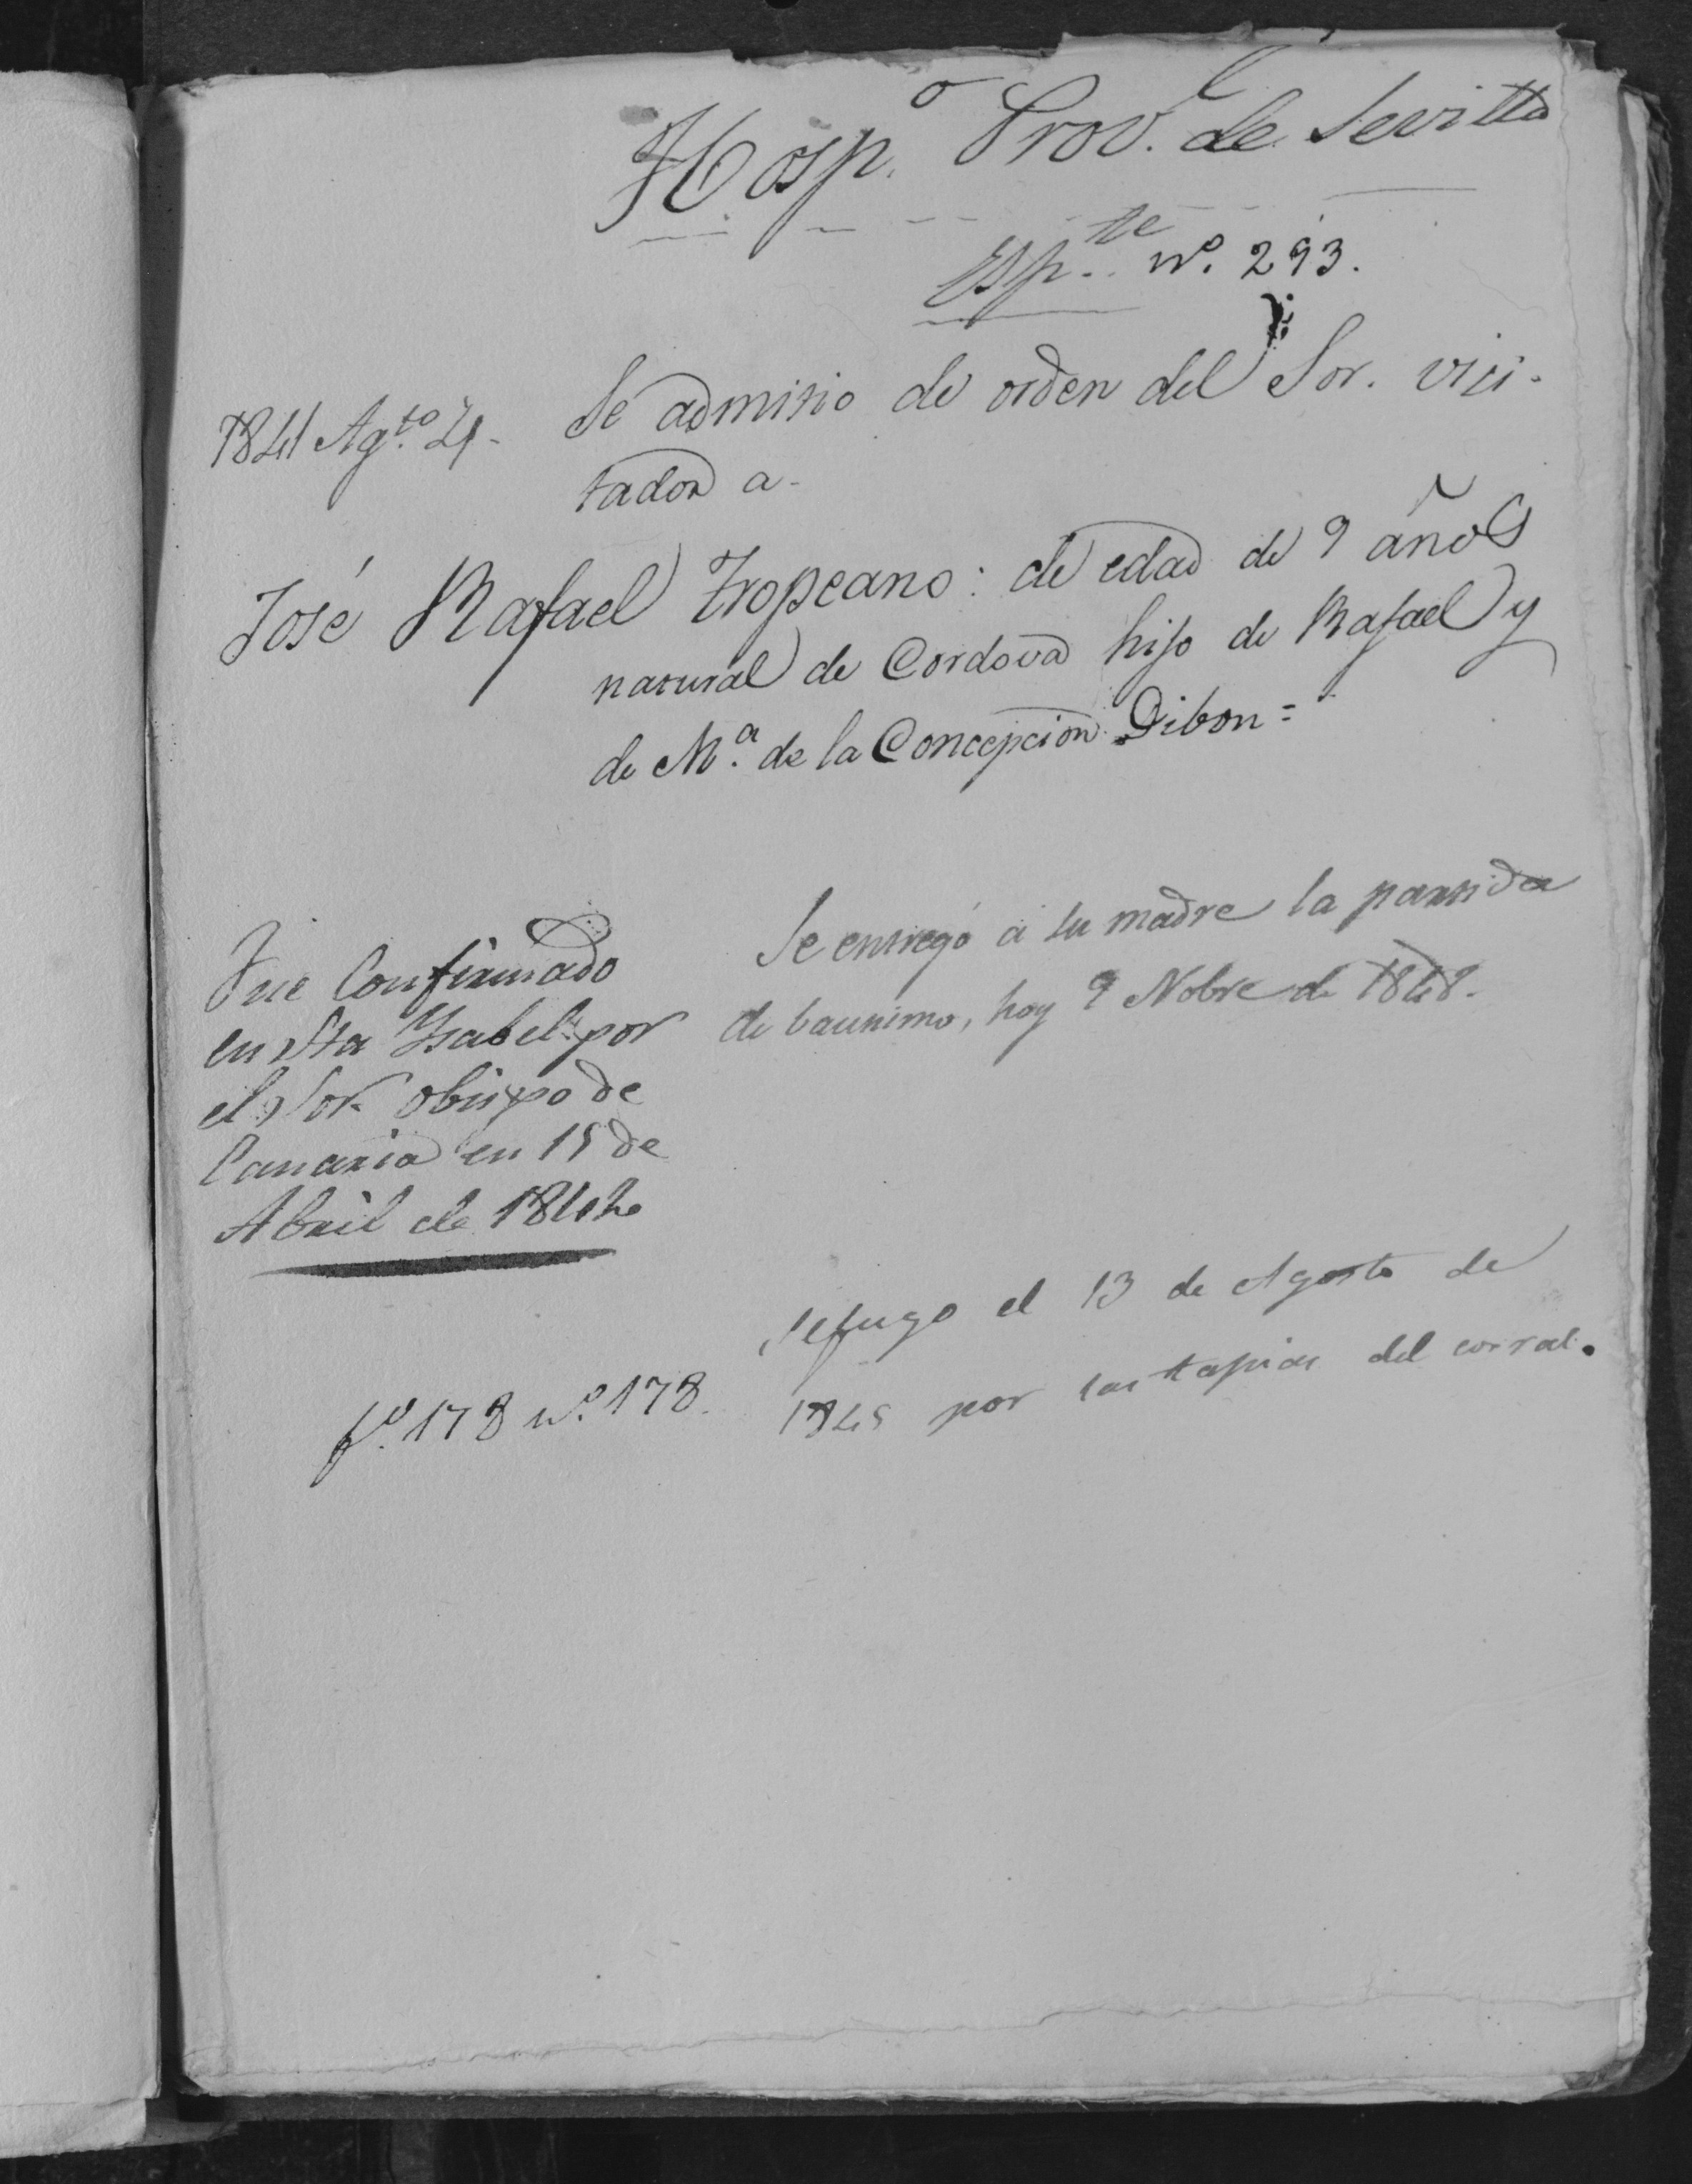 Hosp.º Prov.l de Sevilla
Esp.te nº. 293.
1841 Ag.to 4. Se admitio de orden del Sor. visi-
tador a-
José Rafael Tropeano: de edad de 9 años
natural de Cordova hijo de Rafael y
de M.ª de la Concepcion Gibon=
Se entregó á su madre la partida
de bautismo, hoy 9 Nobre de 1848.
Fue Confirmado
en Sta Ysabel por
el Sor. obispo de
Canaria en 15 de
Abril de 1842
Se fugo el 13 de Agosto de
1845 por las tapias del corral.
fº. 178 nº. 178.